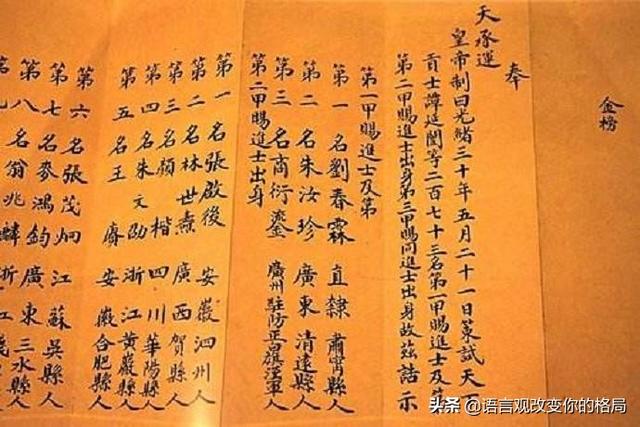 金榜
奉
天承運
皇帝制曰光緒三十年五月二十一日策試天下
貢士譚延闓等二百七十三名第一甲賜進士及第
第二甲賜進士出身第三甲賜同進士出身故茲誥示
第一甲賜進士及第
第一名劉春霖 直隸肅寧縣人
第二名朱汝珍 廣東清遠縣人
第三名商衍鎏 廣州駐防正白旗漢軍人
第二甲賜進士出身
第一名張啟後 安徽泗州人
第二名林世燾 廣西賀縣人
第三名顏楷 四川華陽縣人
第四名朱文劭 浙江黃巖縣人
第五名王賡 安徽合肥縣人
第六名張茂炯 江蘇吳縣人
第七名麥鴻鈞 廣東三水縣人
第八名翁兆麟 浙江
第九
头条 @语言观改变你的格局